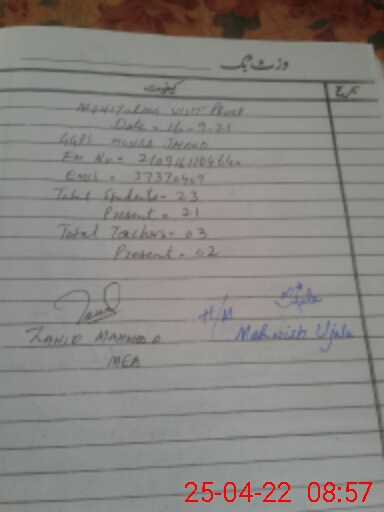 وزٹ بک
کیفیت
تاریخ
MONITORING VISIT PROOF
Date = 16-9-21
GGPS MOHRA
EMIS = 37370409
Total Students = 23
Present = 21
Total Teachers = 03
Present = 02
H/M
ZAHID MAHMOOD
Mahwish Ujala
MEA
25-04-22 08:57